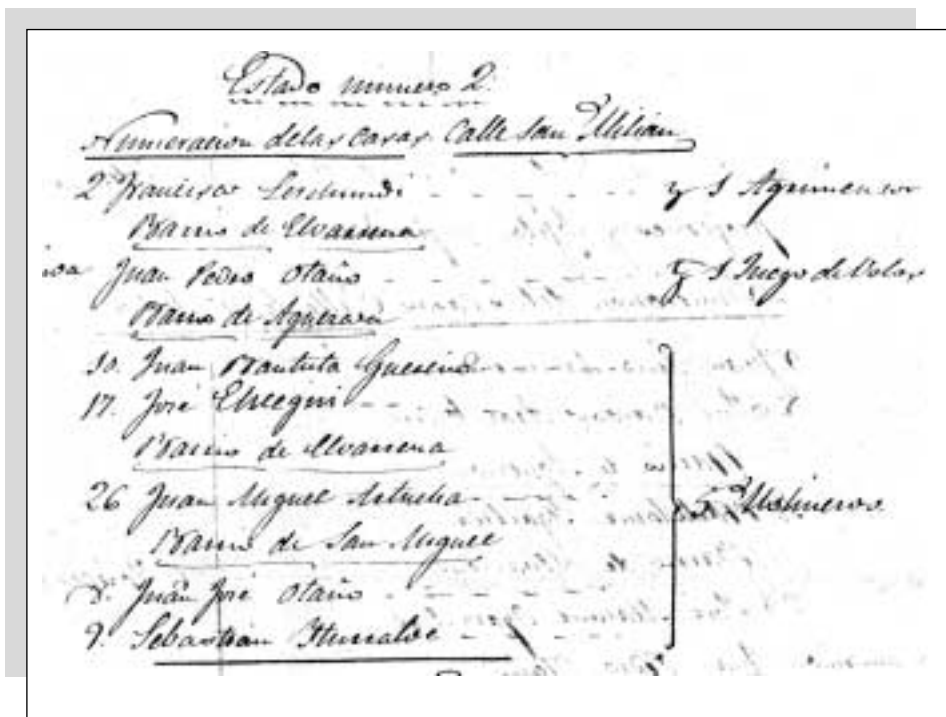 Estado numero 2.
Numeracion delas casas. Calle San Milian
2 Francisco Lerchundi - - - - y 1 Agrimensor
Barrio de Elvarrena
Juan Pedro Otaño - - - - y 1 Juego de Bolas
Barrio de
10. Juan Bautista
17. José Elicegui - -
Barrio de Elvarrena
26 Juan Miguel - - - 5 Molineros
Barrio de San Miguel
8. Juan José Otaño - -
9. Sebastian Iturralde -